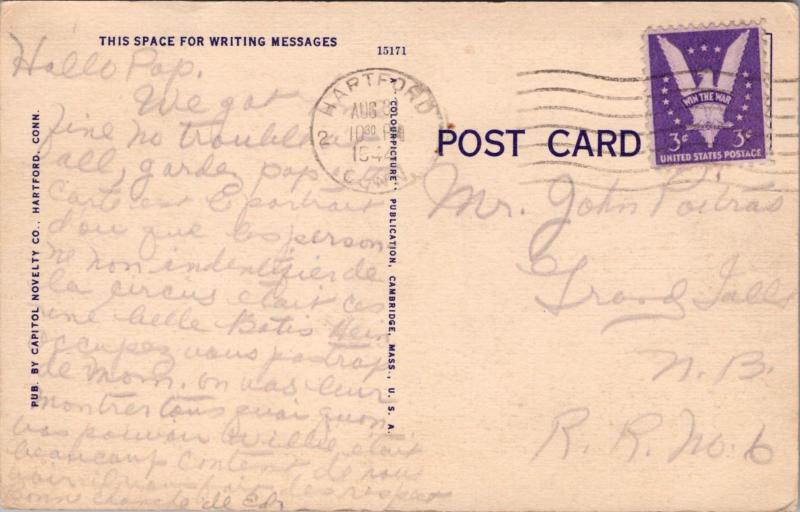 THIS SPACE FOR WRITING MESSAGES
15171
Hallo Pop.
We got
fine no trouble
all, garden pop
carte est le portrait
d'ou que les person
ne non indentisier de
la circus etait cas
une belle Batis Hein
occupez vous pas trop
de Mom. on vas leur
montrer tous quoi quon
vas pouvoir Willie etait
beaucoup content de nous
voir
bonne chanche de Ed
PUB. BY CAPITOL NOVELTY CO., HARTFORD, CONN.
A "COLOURPICTURE" PUBLICATION, CAMBRIDGE, MASS., U. S. A.
HARTFORD
AUG 8
2 10 30 PM
1944
CONN.
POST CARD
WIN THE WAR
3¢ 3¢
UNITED STATES POSTAGE
Mr. John Poitras
Grand Falls
N.B.
R. R. No. 6